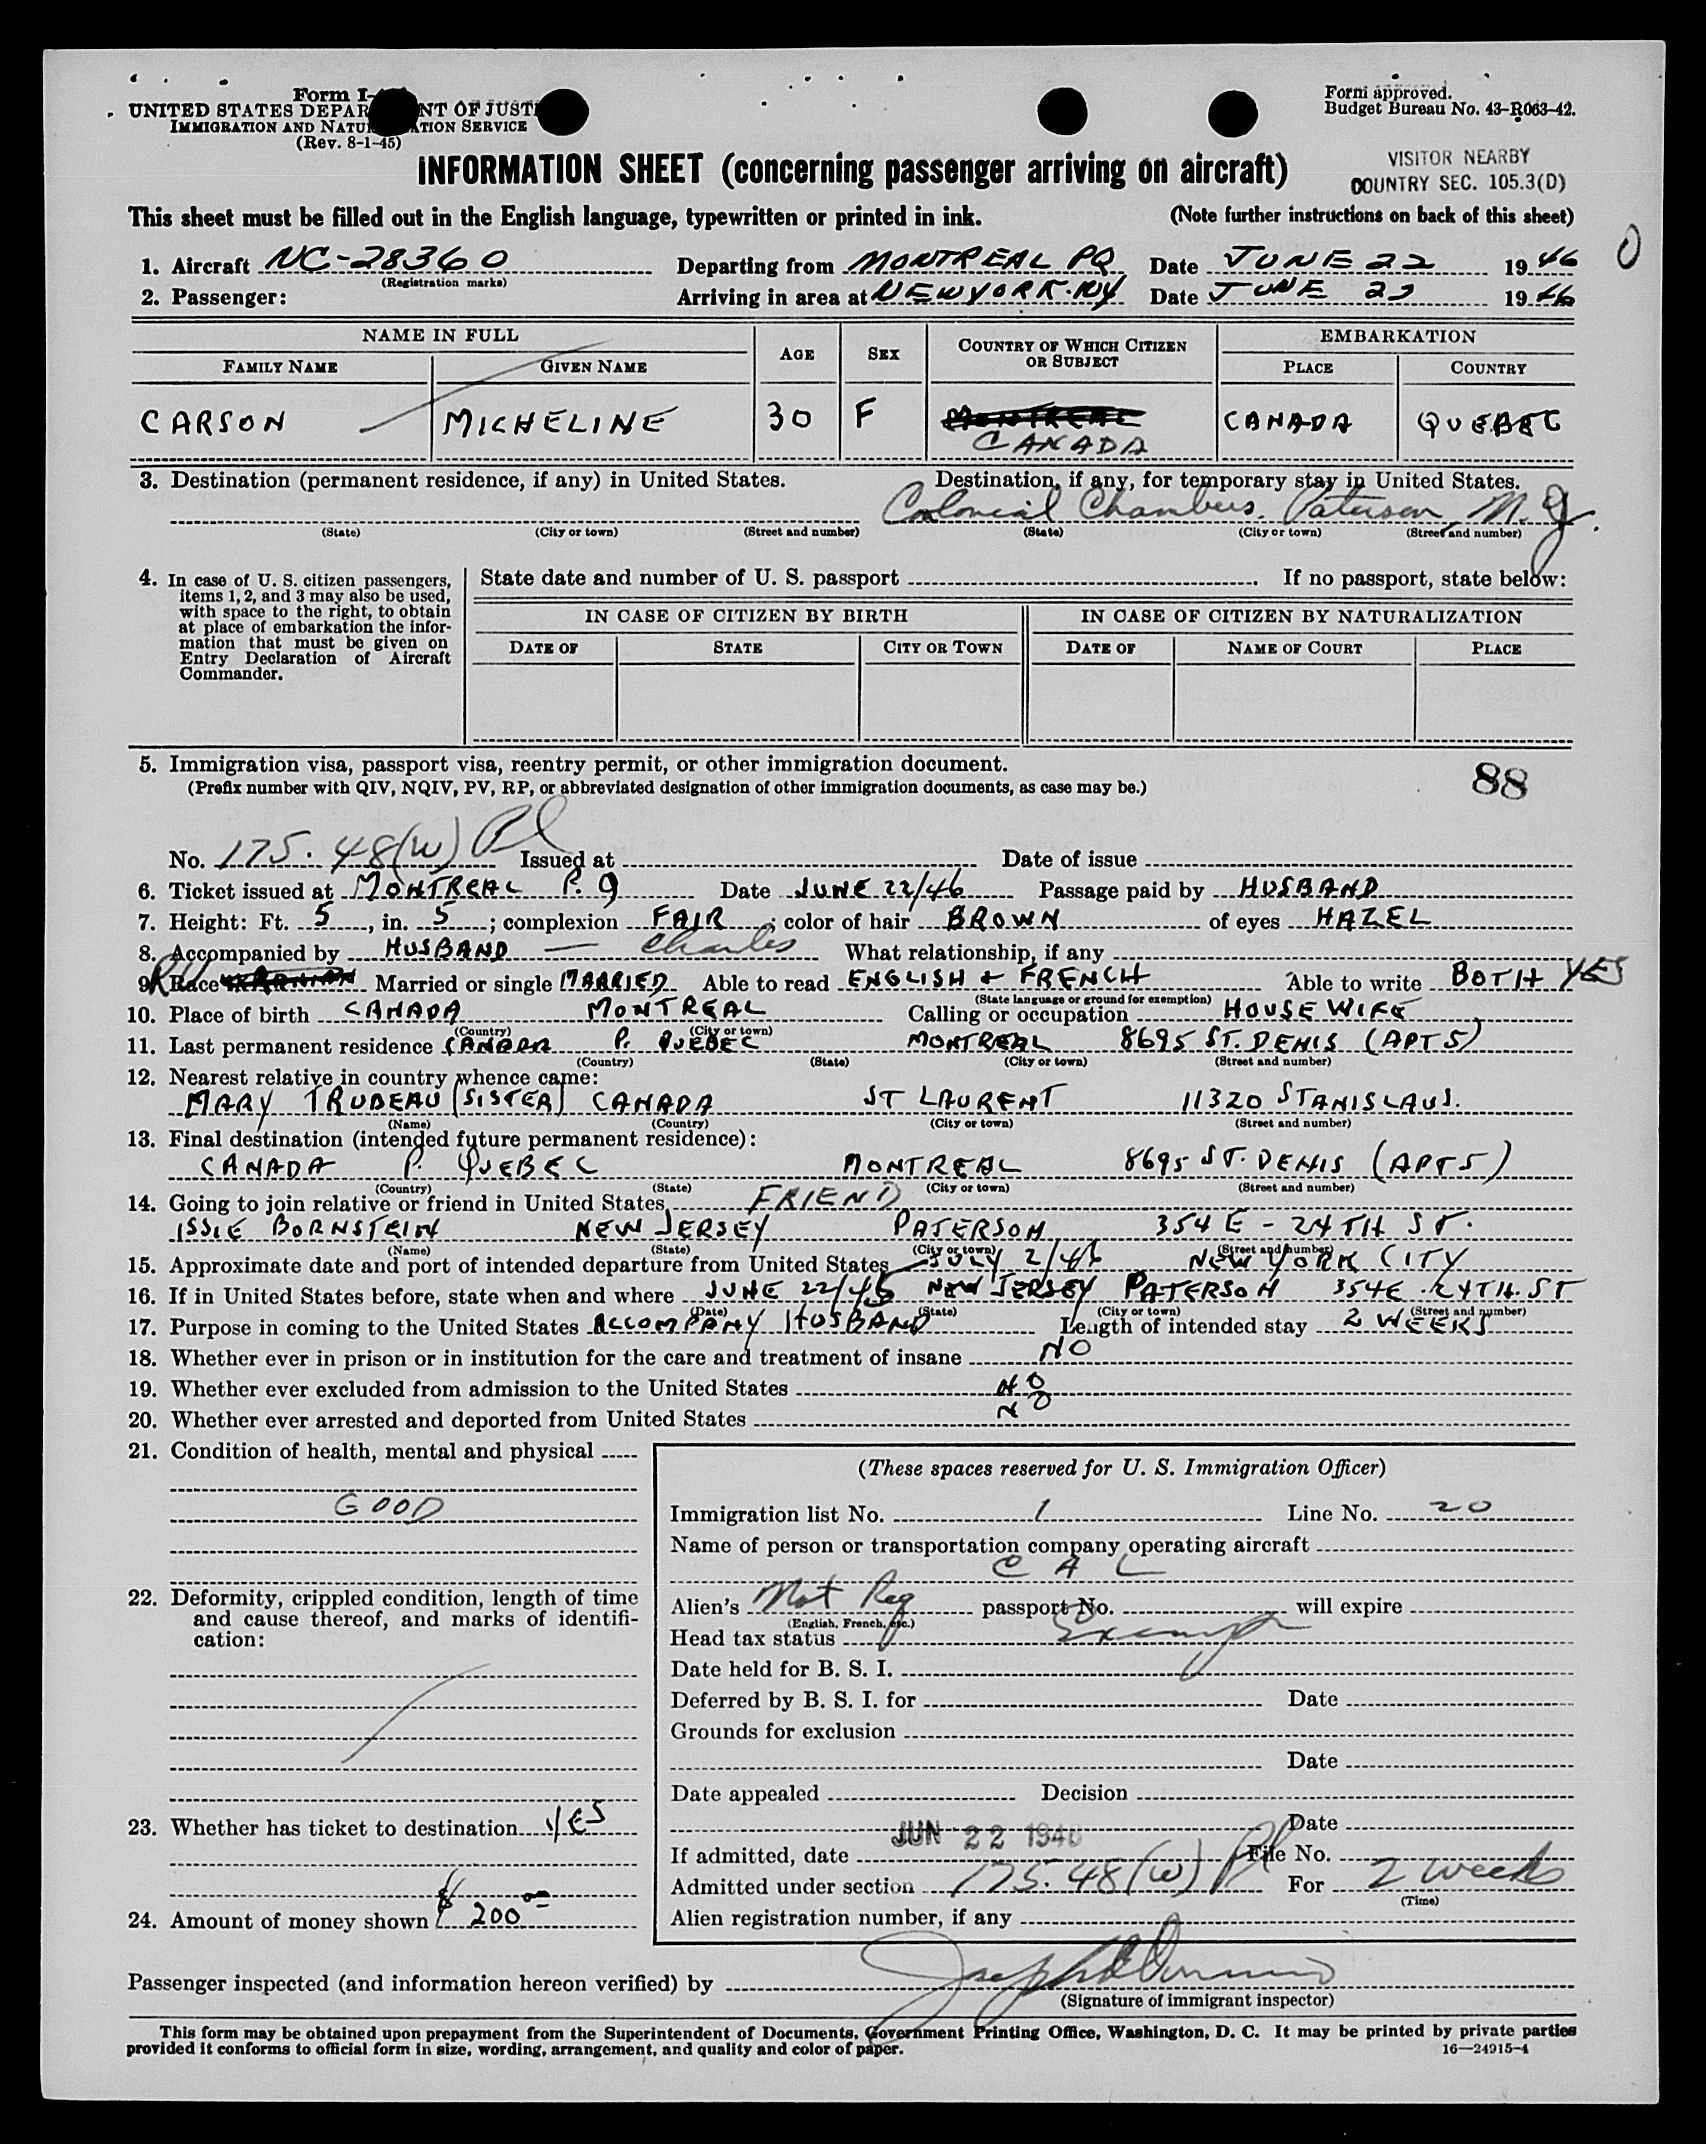 Form I-
UNITED STATES DEPAR NT OF JUSTI
IMMIGRATION AND NATU ATION SERVICE
(Rev. 8-1-45)
Form approved.
Budget Bureau No. 43-R063-42.
INFORMATION SHEET (concerning passenger arriving on aircraft)
VISITOR NEARBY
COUNTRY SEC. 105.3(D)
This sheet must be filled out in the English language, typewritten or printed in ink. (Note further instructions on back of this sheet)
0
1. Aircraft NC-28360 Departing from MONTREAL PQ Date JUNE 22 1946
(Registration marks)
2. Passenger: Arriving in area at NEWYORK. NY Date JUNE 22 1946
NAME IN FULL AGE SEX COUNTRY OF WHICH CITIZEN OR SUBJECT EMBARKATION
FAMILY NAME GIVEN NAME PLACE COUNTRY
CARSON MICHELINE 30 F MONTREAL CANADA QUEBEC
CANADA
3. Destination (permanent residence, if any) in United States. Destination, if any, for temporary stay in United States.
Colonial Chambers. Paterson, N.J.
(State) (City or town) (Street and number) (State) (City or town) (Street and number)
4. In case of U. S. citizen passengers, items 1, 2, and 3 may also be used, with space to the right, to obtain at place of embarkation the information that must be given on Entry Declaration of Aircraft Commander.
State date and number of U. S. passport If no passport, state below:
IN CASE OF CITIZEN BY BIRTH IN CASE OF CITIZEN BY NATURALIZATION
DATE OF STATE CITY OR TOWN DATE OF NAME OF COURT PLACE
5. Immigration visa, passport visa, reentry permit, or other immigration document.
(Prefix number with QIV, NQIV, PV, RP, or abbreviated designation of other immigration documents, as case may be.)
88
No. 175.48(W) Pl Issued at Date of issue
6. Ticket issued at MONTREAL P.Q Date JUNE 22/46 Passage paid by HUSBAND
7. Height: Ft. 5, in. 5; complexion FAIR; color of hair BROWN of eyes HAZEL
8. Accompanied by HUSBAND — Charles What relationship, if any
9. Race Married or single MARRIED Able to read ENGLISH + FRENCH Able to write BOTH YES
(State language or ground for exemption)
10. Place of birth CANADA MONTREAL Calling or occupation HOUSE WIFE
(Country) (City or town)
11. Last permanent residence CANADA P. QUEBEC MONTREAL 8695 ST. DENIS (APT 5)
(Country) (State) (City or town) (Street and number)
12. Nearest relative in country whence came:
MARY TRUDEAU (SISTER) CANADA ST LAURENT 11320 STANISLAUS.
(Name) (Country) (City or town) (Street and number)
13. Final destination (intended future permanent residence):
CANADA P. QUEBEC MONTREAL 8695 ST. DENIS (APT 5)
(Country) (State) (City or town) (Street and number)
14. Going to join relative or friend in United States FRIEND
ISSIE BORNSTEIN NEW JERSEY PATERSON 354 E - 24TH ST.
(Name) (State) (City or town) (Street and number)
15. Approximate date and port of intended departure from United States JULY 2/46 NEW YORK CITY
16. If in United States before, state when and where JUNE 22/45 NEW JERSEY PATERSON 354E. 24TH. ST
(Date) (State) (City or town) (Street and number)
17. Purpose in coming to the United States ACCOMPANY HUSBAND Length of intended stay 2 WEEKS
18. Whether ever in prison or in institution for the care and treatment of insane NO
19. Whether ever excluded from admission to the United States NO
20. Whether ever arrested and deported from United States NO
21. Condition of health, mental and physical
GOOD
22. Deformity, crippled condition, length of time and cause thereof, and marks of identification:
23. Whether has ticket to destination YES
24. Amount of money shown $200 00
(These spaces reserved for U. S. Immigration Officer)
Immigration list No. 1 Line No. 20
Name of person or transportation company operating aircraft
C A L
Alien's Not Req passport No. will expire
(English, French, etc.)
Head tax status Exempt
Date held for B. S. I.
Deferred by B. S. I. for Date
Grounds for exclusion
Date
Date appealed Decision
Date
If admitted, date JUN 22 1946 File No.
Admitted under section 175.48(W) Pl For 2 weeks
(Time)
Alien registration number, if any
Passenger inspected (and information hereon verified) by
(Signature of immigrant inspector)
This form may be obtained upon prepayment from the Superintendent of Documents, Government Printing Office, Washington, D. C. It may be printed by private parties
provided it conforms to official form in size, wording, arrangement, and quality and color of paper.
16—24915-4